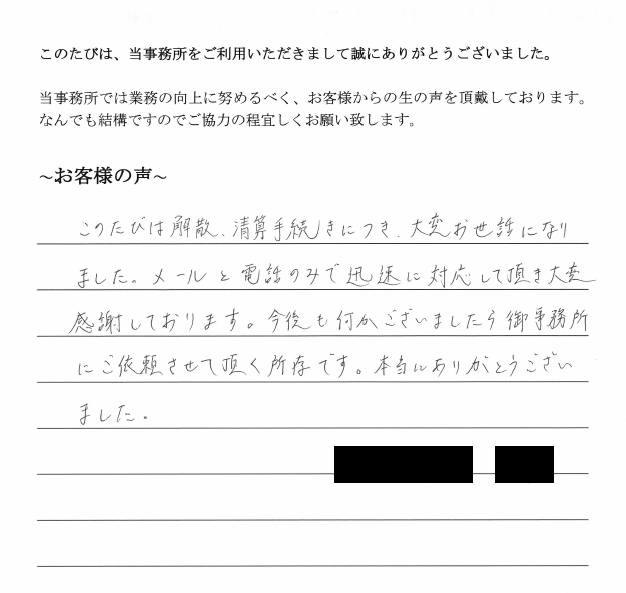 このたびは、当事務所をご利用いただきまして誠にありがとうございました。
当事務所では業務の向上に努めるべく、お客様からの生の声を頂戴しております。
なんでも結構ですのでご協力の程宜しくお願い致します。
~お客様の声~
このたびは解散、清算手続きにつき、大変お世話になり
ました。メールと電話のみで迅速に対応して頂き大変
感謝しております。今後も何かございましたら御事務所
にご依頼させて頂く所存です。本当にありがとうござい
ました。